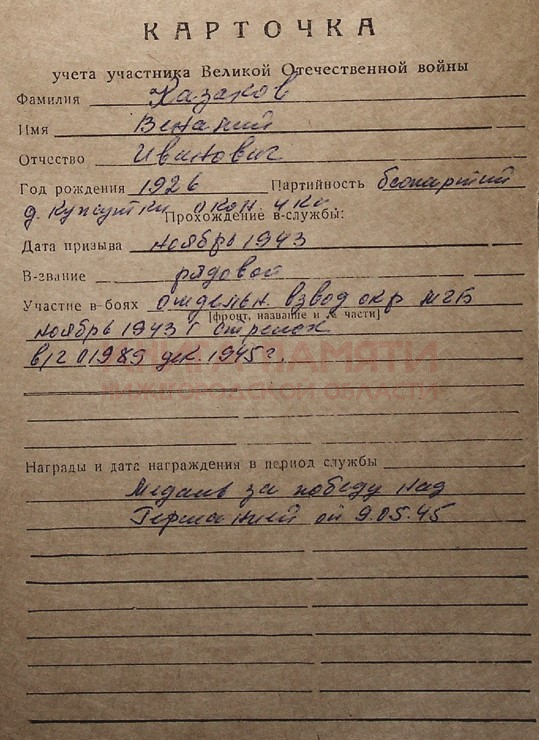 КАРТОЧКА
учета участника Великой Отечественной войны
Фамилия Казаков
Имя Веналий
Отчество Иванович
Год рождения 1926 Партийность беспартий
д. окон. 4 кл.
Прохождение в-службы:
Дата призыва ноябрь 1943
В-звание рядовой
Участие в боях отдельн взвод окр МГБ
[фронт, название и № части]
ноябрь 1943 г стрелок
в/г 01989 дек. 1945 г.
ПАМЯТИ
НИЖЕГОРОДСКОЙ ОБЛАСТИ
Награды и дата награждения в период службы
Медаль за победу над
Германией от 9.05.45